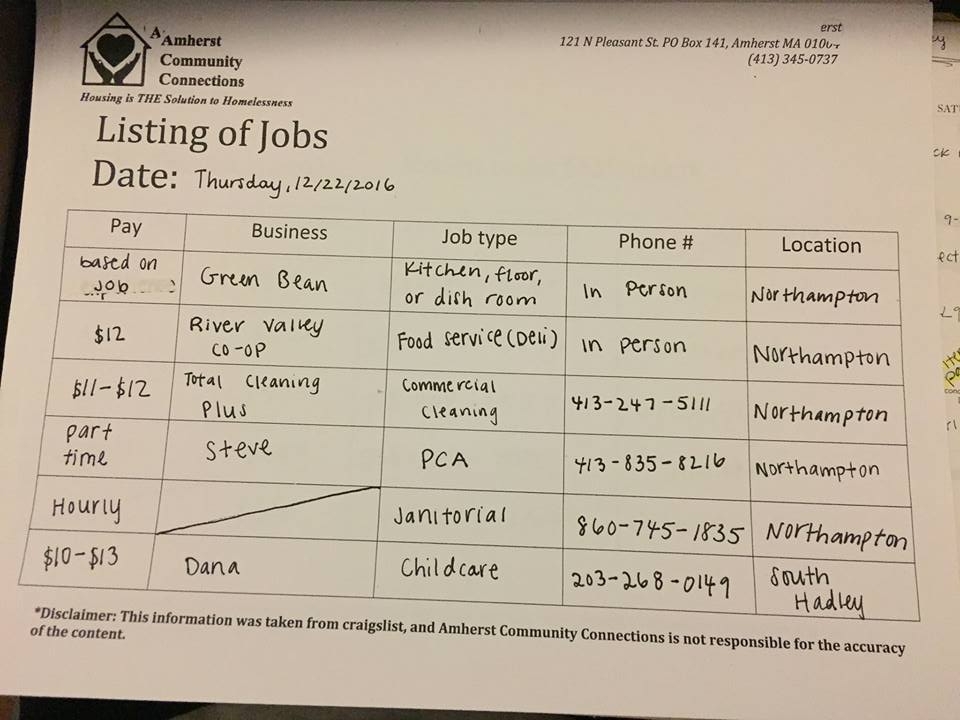 A
Amherst
Community
Connections
Housing is THE Solution to Homelessness
erst
121 N Pleasant St. PO Box 141, Amherst MA
(413) 345-0737
Listing of Jobs
Date: Thursday, 12/22/2016
Pay Business Job type Phone # Location
based on
Job
Green Bean
Kitchen, floor,
or dish room
In Person
Northampton
$12
River Valley
CO-OP
Food service (Deli)
In person
Northampton
$11-$12
Total Cleaning
Plus
Commercial
Cleaning
413-247-5111
Northampton
part
time
Steve
PCA
413-835-8216
Northampton
Hourly
Janitorial
860-745-1835
Northampton
$10-$13
Dana
Childcare
203-268-0149
South
Hadley
*Disclaimer: This information was taken from craigslist, and Amherst Community Connections is not responsible for the accuracy
of the content.
SAT
9-
ect